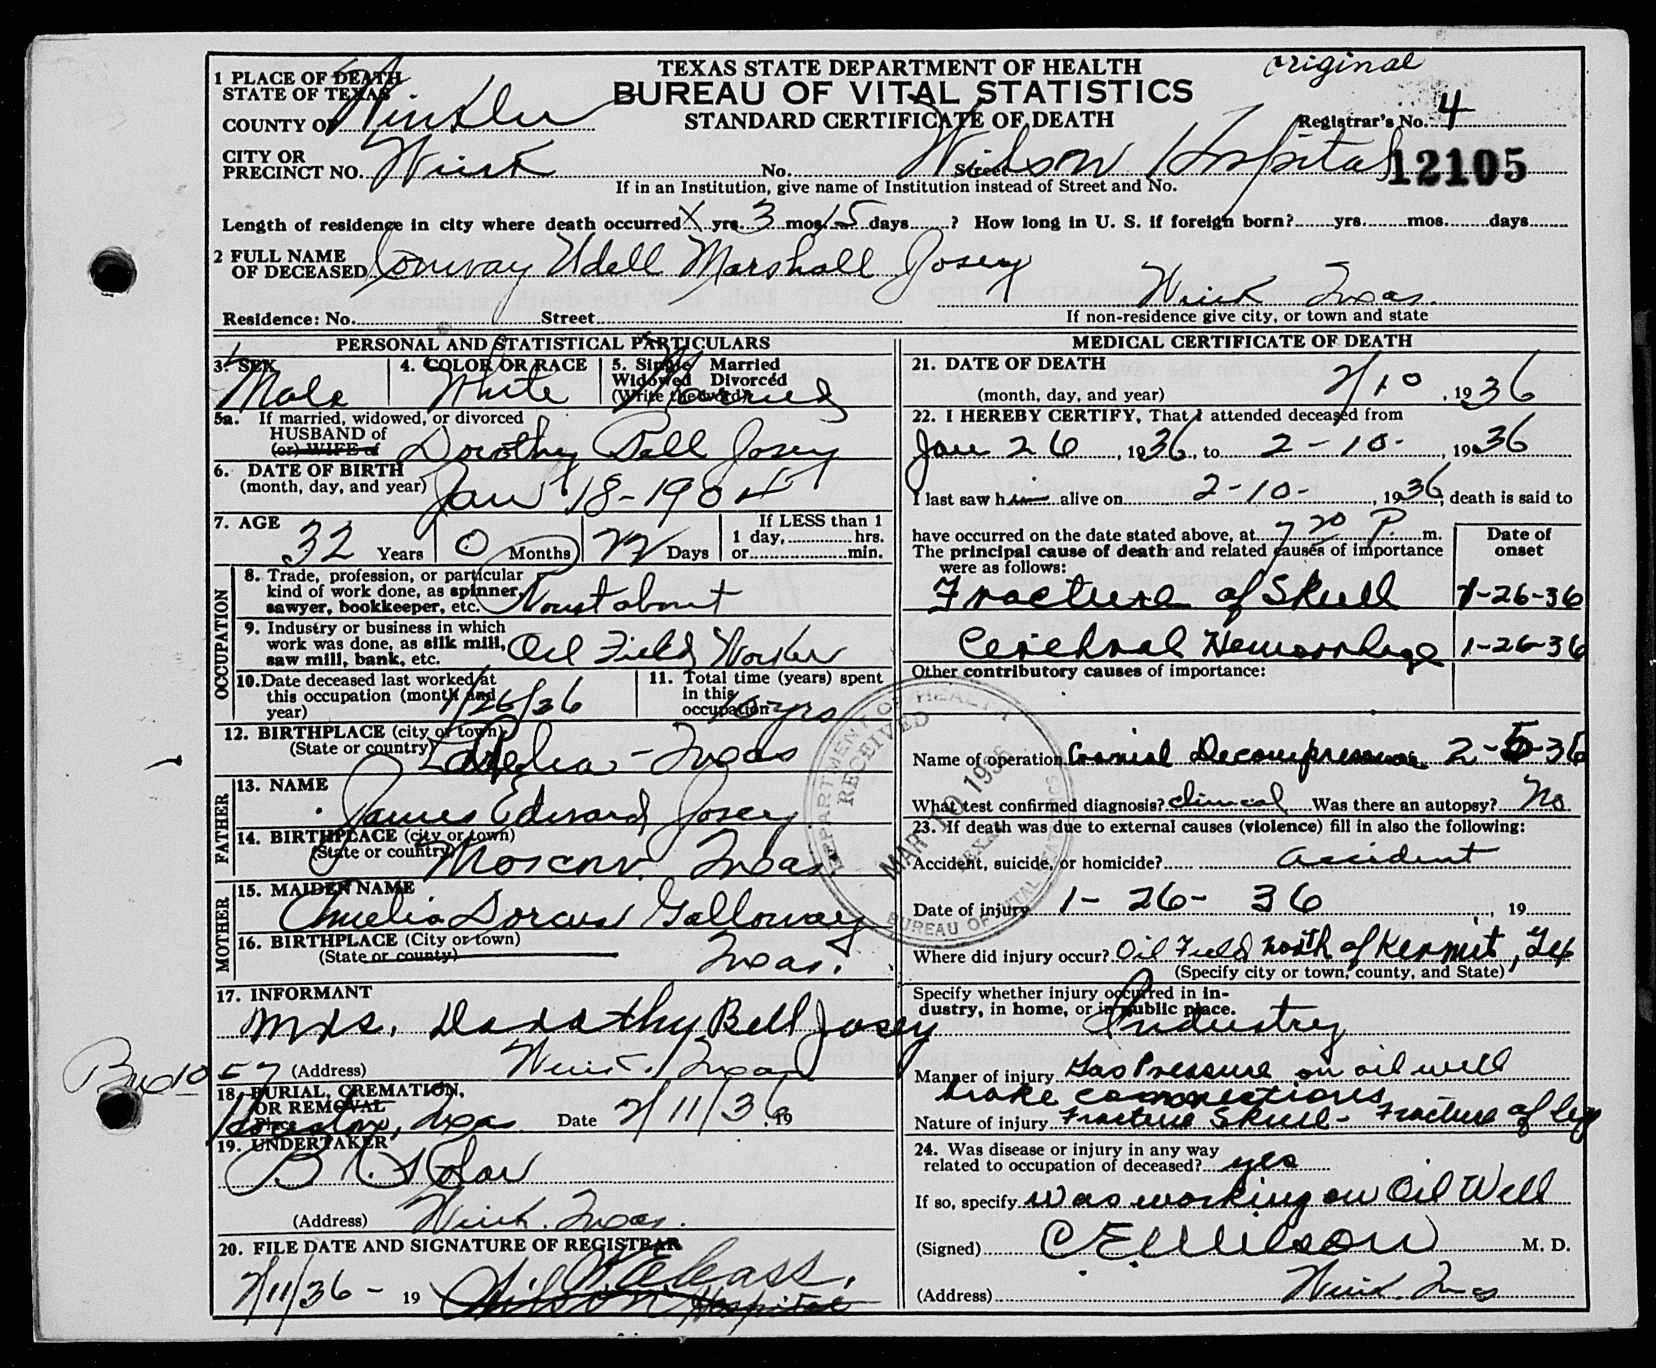 original
TEXAS STATE DEPARTMENT OF HEALTH
BUREAU OF VITAL STATISTICS
STANDARD CERTIFICATE OF DEATH
1 PLACE OF DEATH
STATE OF TEXAS
COUNTY OF Winkler
Registrar's No. 4
CITY OR
PRECINCT NO. Wink No. Street Wilson Hospital 12105
If in an Institution, give name of Institution instead of Street and No.
Length of residence in city where death occurred X yrs. 3 mos. 15 days ? How long in U. S. if foreign born? yrs. mos. days
2 FULL NAME
OF DECEASED Conway Udell Marshall Josey
Residence: No. Street Wink Texas.
If non-residence give city, or town and state
PERSONAL AND STATISTICAL PARTICULARS
3. SEX Male
4. COLOR OR RACE White
5. Single Married
Widowed Divorced
(Write the word) Married
5a. If married, widowed, or divorced
HUSBAND of
(or) WIFE of Dorothy Bell Josey
6. DATE OF BIRTH
(month, day, and year) Jan 18-1904
7. AGE 32 Years 0 Months 22 Days
If LESS than 1
1 day, hrs.
or min.
OCCUPATION
8. Trade, profession, or particular
kind of work done, as spinner,
sawyer, bookkeeper, etc. Roustabout
9. Industry or business in which
work was done, as silk mill,
saw mill, bank, etc. Oil Field Worker
10. Date deceased last worked at
this occupation (month and
year) 1/26/36
11. Total time (years) spent
in this
occupation 10 yrs
12. BIRTHPLACE (city or town)
(State or country) Texas
FATHER
13. NAME James Edward Josey
14. BIRTHPLACE (city or town)
(State or country) Moscow. Texas
MOTHER
15. MAIDEN NAME Amelia Dorcus Galloway
16. BIRTHPLACE (City or town)
(State or county) Texas.
17. INFORMANT
Mrs. Dorothy Bell Josey
Box 1057 (Address) Wink. Texas
18. BURIAL, CREMATION,
OR REMOVAL
Place Houston, Texas Date 2/11/36 19
19. UNDERTAKER
(Address) Wink. Texas.
20. FILE DATE AND SIGNATURE OF REGISTRAR
2/11/36 - 19
Wilson Hospital
MEDICAL CERTIFICATE OF DEATH
21. DATE OF DEATH
(month, day, and year) 2/10, 1936
22. I HEREBY CERTIFY, That I attended deceased from
Jan 26, 1936, to 2-10-, 1936
I last saw him alive on 2-10-, 1936, death is said to
have occurred on the date stated above, at 7 20 P. m.
The principal cause of death and related causes of importance
were as follows:
Date of
onset
Fracture of Skull 1-26-36
Cerebral Hemorrhage 1-26-36
Other contributory causes of importance:
DEPARTMENT OF HEALTH
RECEIVED
MAR 10 1936
TEXAS
BUREAU OF VITAL STATISTICS
Name of operation Cranial Decompression 2-5-36
What test confirmed diagnosis? clinical Was there an autopsy? No
23. If death was due to external causes (violence) fill in also the following:
Accident, suicide, or homicide? accident
Date of injury 1-26-36, 19
Where did injury occur? Oil Field North of Kermit, Tex
(Specify city or town, county, and State)
Specify whether injury occurred in in-
dustry, in home, or in public place. Industry
Manner of injury Gas Pressure on oil well
broke connections
Nature of injury Fracture Skull - Fracture of leg
24. Was disease or injury in any way
related to occupation of deceased? yes
If so, specify Was working on Oil Well
(Signed) C. E. Wilson M. D.
(Address) Wink. Texas